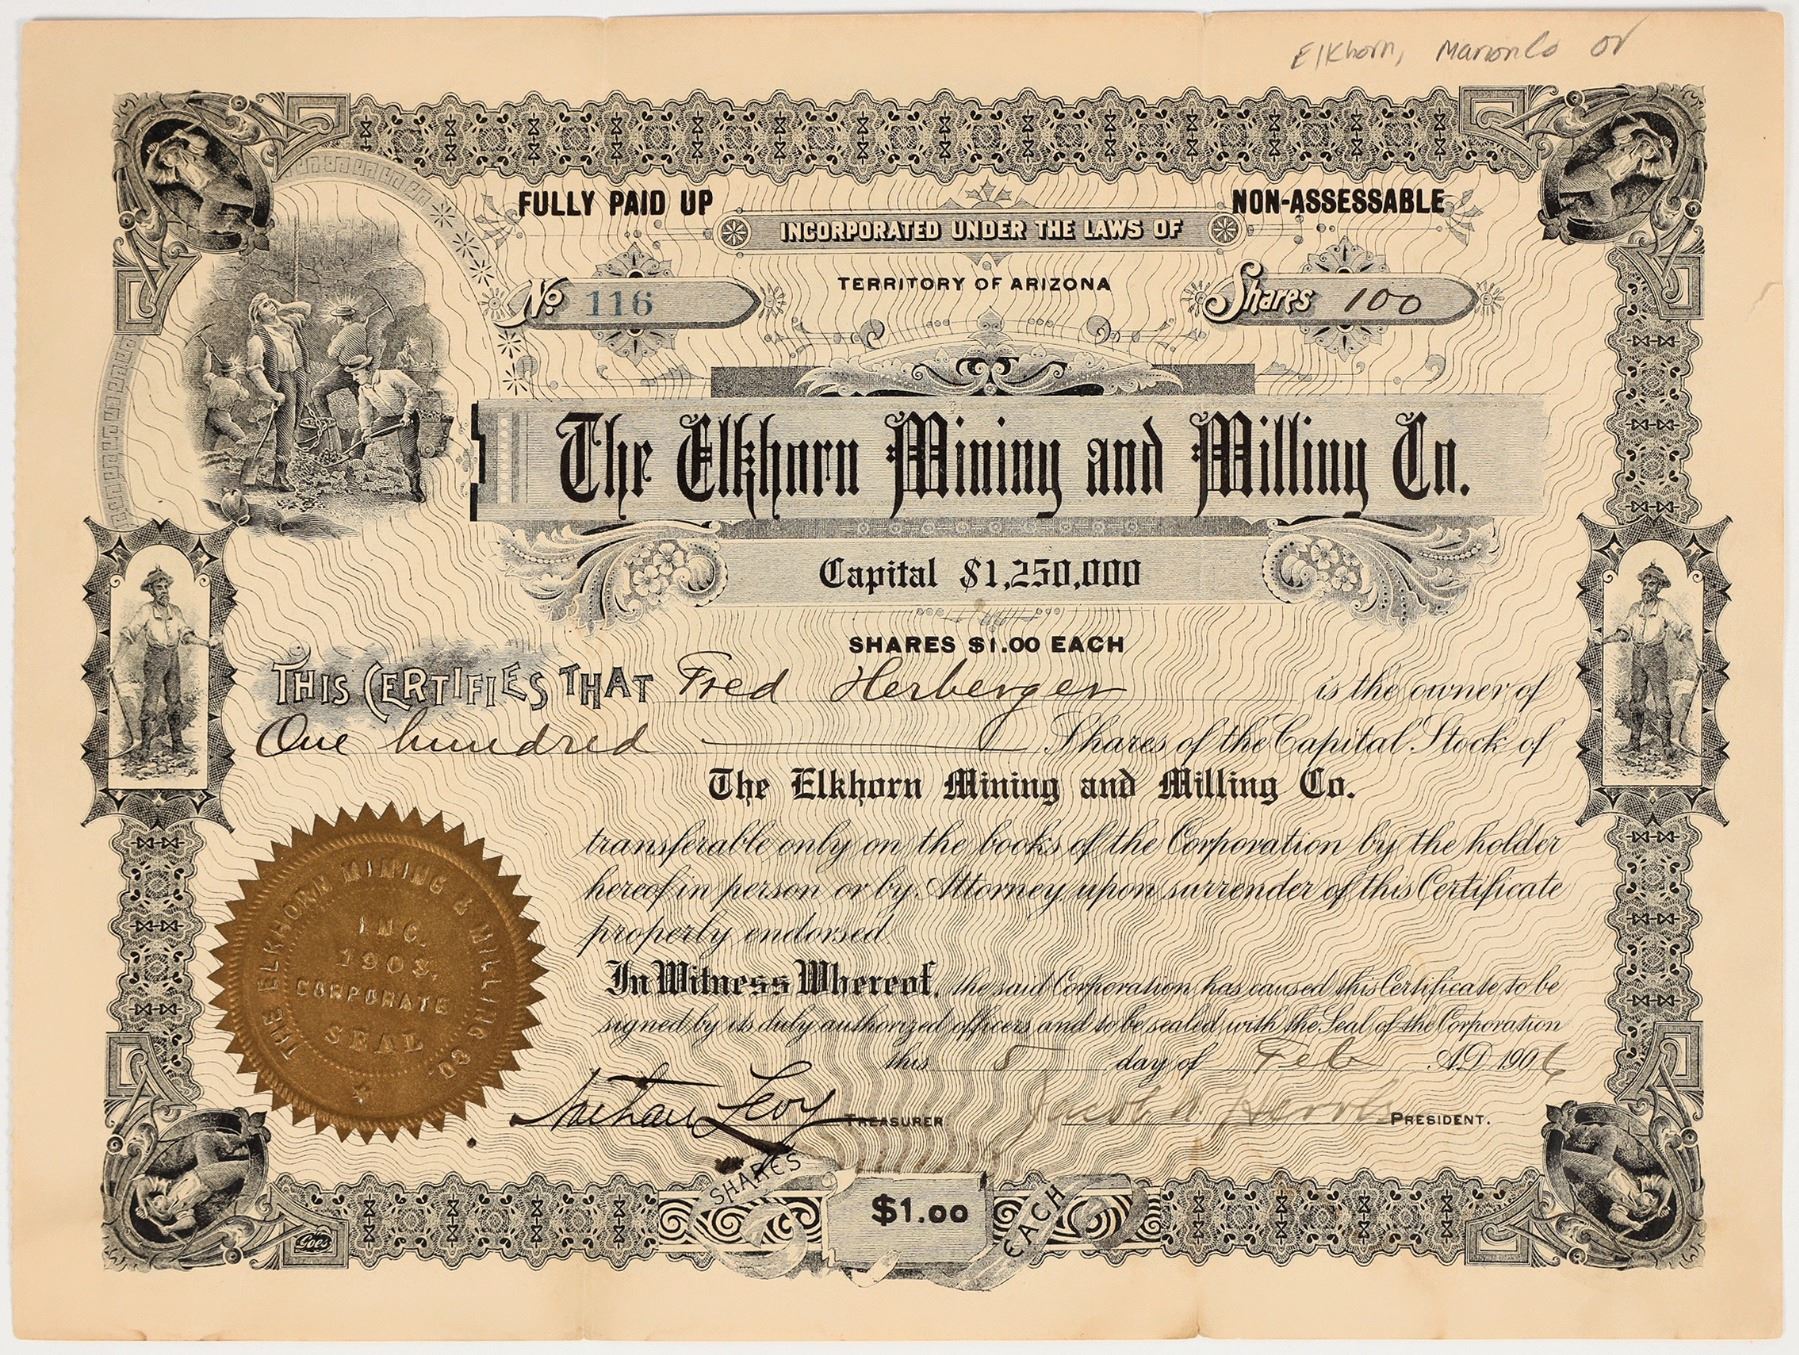 Elkhorn, Marion Co or
FULLY PAID UP
NON-ASSESSABLE
INCORPORATED UNDER THE LAWS OF
TERRITORY OF ARIZONA
No. 116
Shares 100
The Elkhorn Mining and Milling Co.
Capital $1,250,000
SHARES $1.00 EACH
THIS CERTIFIES THAT Fred Herberger is the owner of
One hundred Shares of the Capital Stock of
The Elkhorn Mining and Milling Co.
transferable only on the books of the Corporation by the holder
hereof in person or by Attorney upon surrender of this Certificate
properly endorsed.
In Witness Whereof, the said Corporation has caused this Certificate to be
signed by its duly authorized officers and to be sealed with the Seal of the Corporation
this 5 day of Feb A.D. 1906
Nathan Levy TREASURER
Jacob PRESIDENT.
THE ELKHORN MINING & MILLING CO.
INC.
1903.
CORPORATE
SEAL
SHARES
$1.00
EACH
Goes